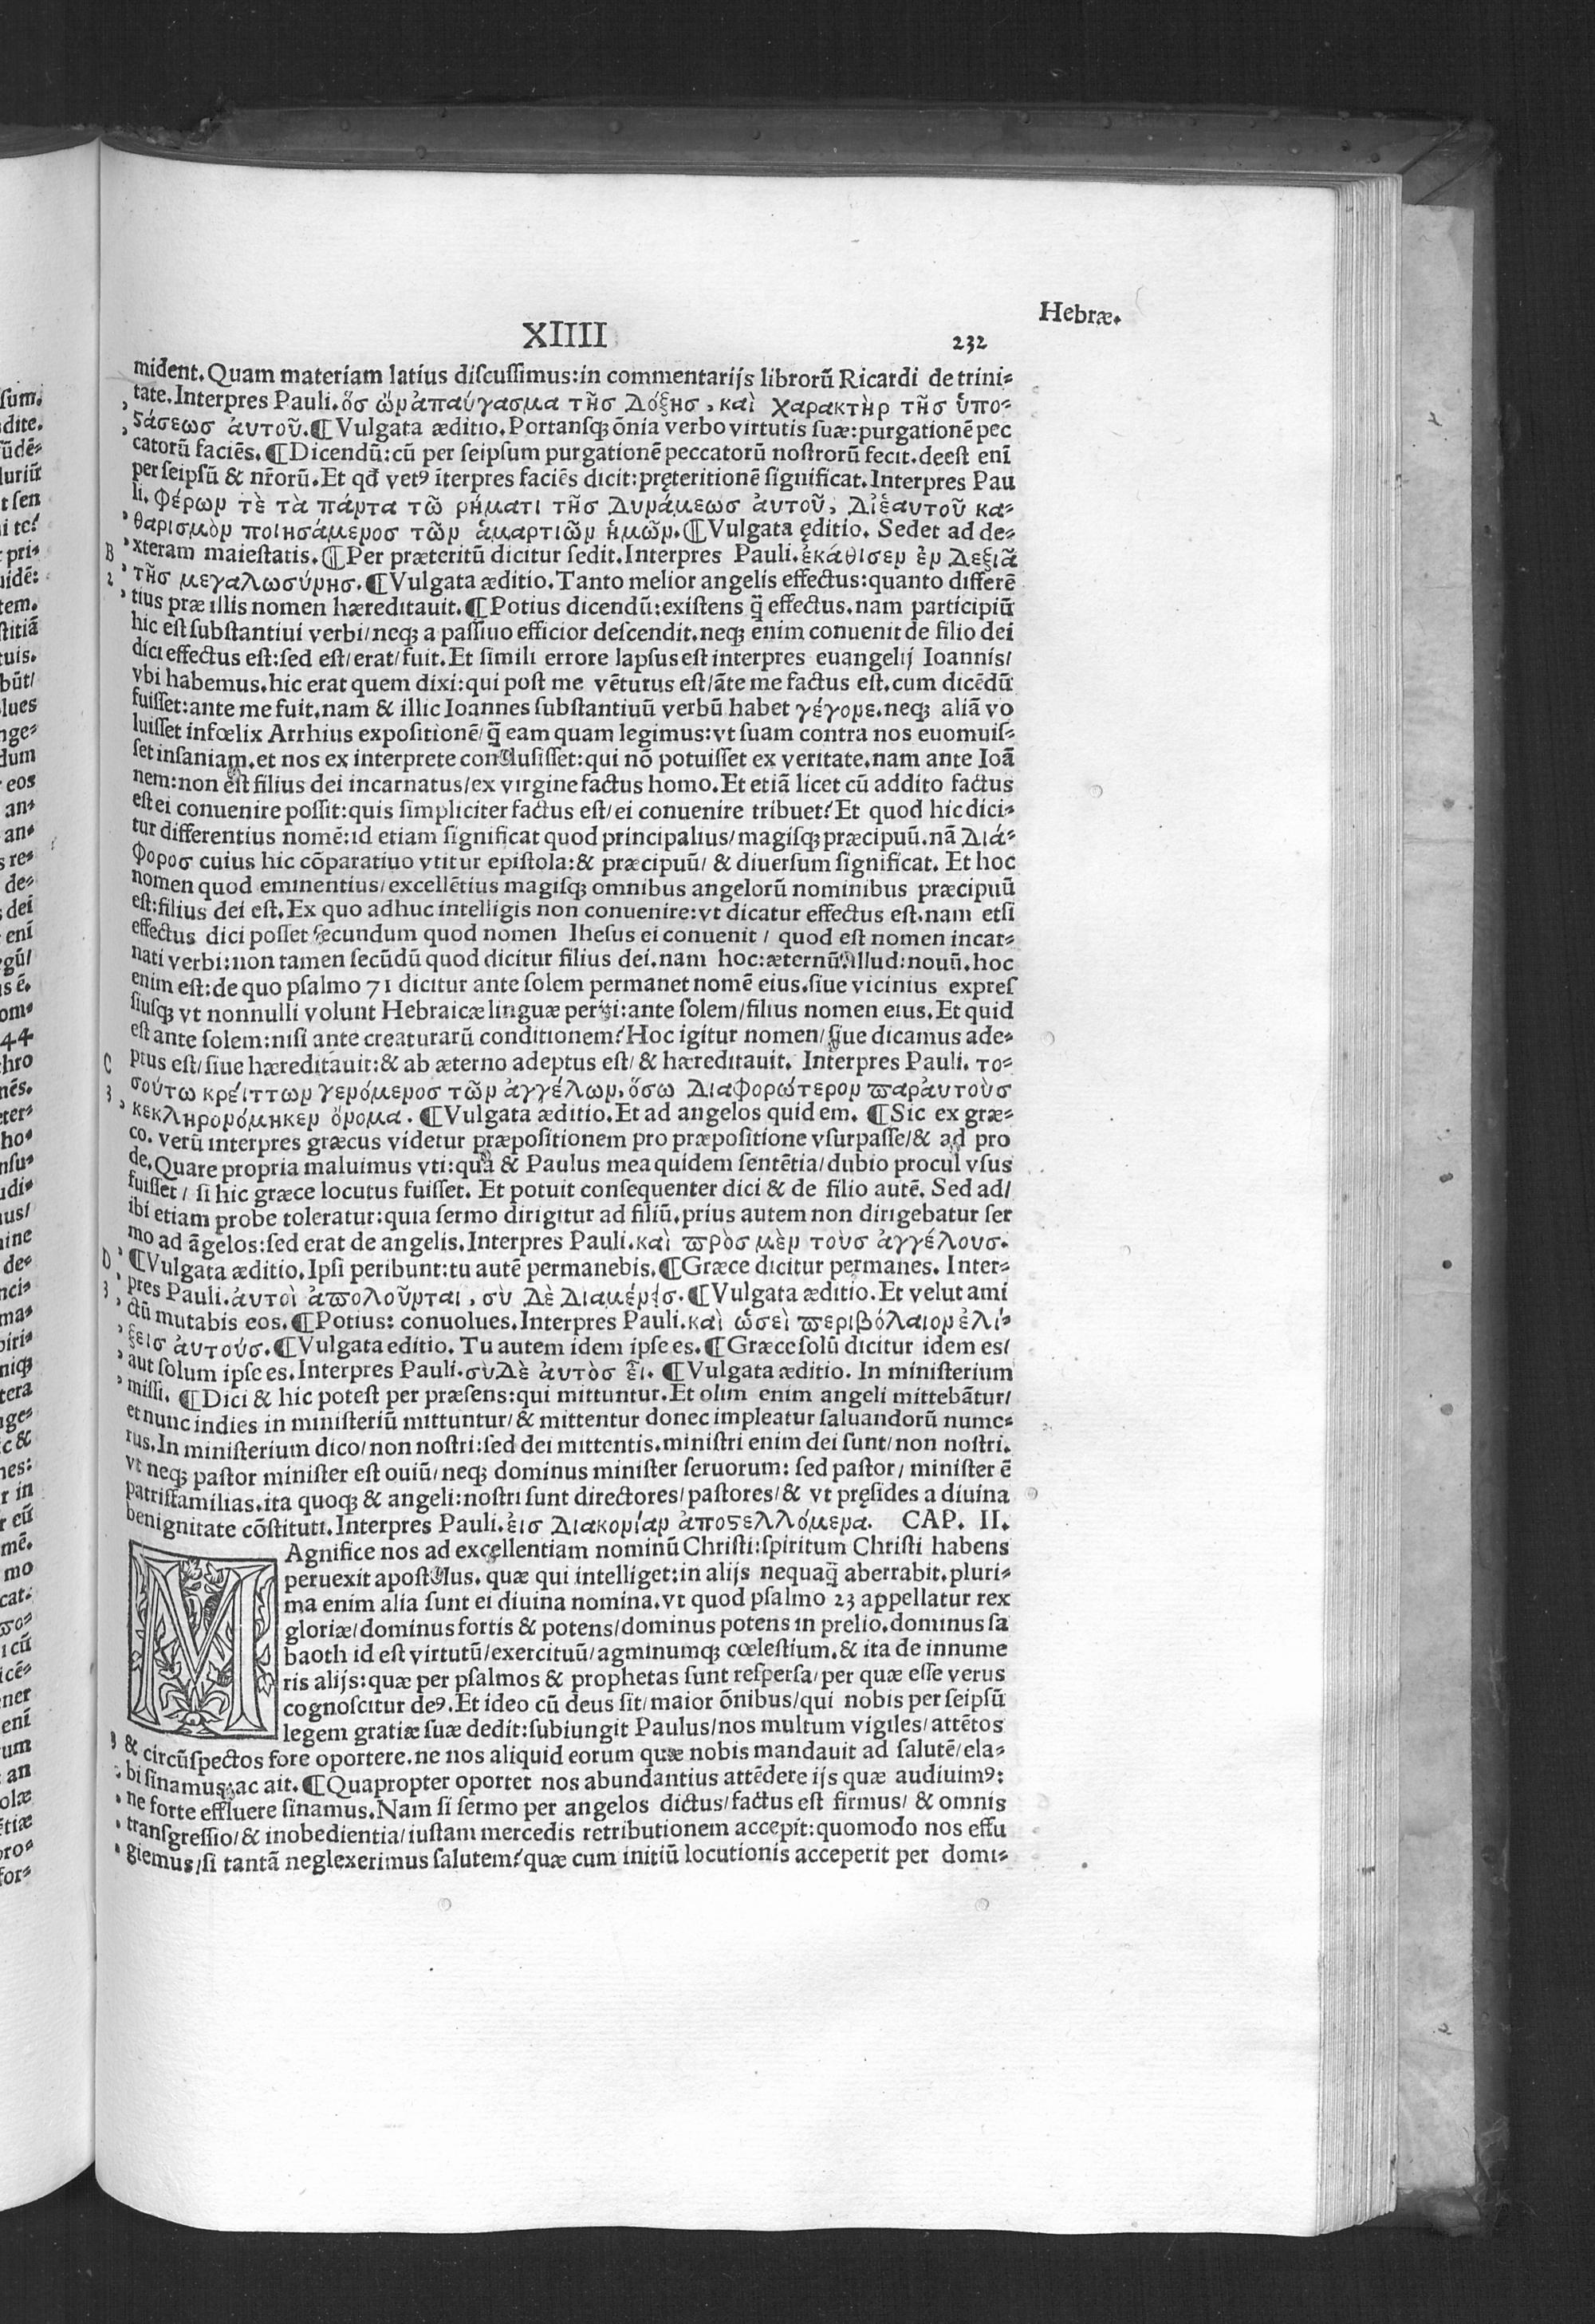 Hebræ.
XIIII
232
mident. Quam materiam latius diſcuſſimus: in commentarijs librorũ Ricardi de trini⸗
tate. Interpres Pauli. ὅσ ὢν ἀπαύγασμα τῆσ δόξησ, καὶ χαρακτὴρ τῆσ ὑπο⸗
ςάσεωσ ἀυτοῦ. ¶ Vulgata æditio. Portanſq; õnia verbo virtutis ſuæ: purgationẽ pec
catorũ faciẽs. ¶ Dicendũ: cũ per ſeipſum purgationẽ peccatorũ noſtrorũ fecit. deeſt enĩ
per ſeipſũ & nr̃orũ. Et qđ vetꝰ ĩterpres faciẽs dicit: pręteritionẽ ſignificat. Interpres Pau
li. φέρων τὲ τὰ πάντα τῶ ρήματι τῆσ δυνάμεωσ ἀυτοῦ, δι᾽ἑαυτοῦ κα⸗
θαρισμὸν ποιησάμενοσ τῶν ἁμαρτιῶν ἡμῶν. ¶ Vulgata ęditio. Sedet ad de⸗
B xteram maieſtatis. ¶ Per præteritũ dicitur ſedit. Interpres Pauli. ἐκάθισεν ἐν δεξιᾶ
2 τῆσ μεγαλωσύνησ. ¶ Vulgata æditio. Tanto melior angelis effectus: quanto differẽ
tius præ illis nomen hæreditauit. ¶ Potius dicendũ: exiſtens q̃ effectus. nam participiũ
hic eſt ſubſtantiui verbi/ neq; a paſſiuo efficior deſcendit. neq; enim conuenit de filio dei
dici effectus eſt: ſed eſt/ erat/ fuit. Et ſimili errore lapſus eſt interpres euangelij Ioannis/
vbi habemus. hic erat quem dixi: qui poſt me vẽturus eſt/ ãte me factus eſt. cum dicẽdũ
fuiſſet: ante me fuit. nam & illic Ioannes ſubſtantiuũ verbũ habet γέγονε. neq; aliã vo
luiſſet infœlix Arrhius expoſitionẽ/ q̃ eam quam legimus: vt ſuam contra nos euomuiſ⸗
ſet inſaniam. et nos ex interprete concluſiſſet: qui nõ potuiſſet ex veritate. nam ante Ioã
nem: non eſt filius dei incarnatus/ ex virgine factus homo. Et etiã licet cũ addito factus
eſt ei conuenire poſſit: quis ſimpliciter factus eſt/ ei conuenire tribuet? Et quod hic dici⸗
tur differentius nomẽ: id etiam ſignificat quod principalius/ magiſq; præcipuũ. nã διά⸗
φοροσ cuius hic cõparatiuo vtitur epiſtola: & præcipuũ/ & diuerſum ſignificat. Et hoc
nomen quod eminentius/ excellẽtius magiſq; omnibus angelorũ nominibus præcipuũ
eſt: filius dei eſt. Ex quo adhuc intelligis non conuenire: vt dicatur effectus eſt. nam etſi
effectus dici poſſet ſecundum quod nomen Iheſus ei conuenit/ quod eſt nomen incar⸗
nati verbi: non tamen ſecũdũ quod dicitur filius dei. nam hoc: æternũ illud: nouũ. hoc
enim eſt: de quo pſalmo 71 dicitur ante ſolem permanet nomẽ eius. ſiue vicinius expreſ
ſiuſq; vt nonnulli volunt Hebraicæ linguæ periti: ante ſolem/ filius nomen eius. Et quid
eſt ante ſolem: niſi ante creaturarũ conditionem? Hoc igitur nomen/ ſiue dicamus ade⸗
C ptus eſt/ ſiue hæreditauit: & ab æterno adeptus eſt/ & hæreditauit. Interpres Pauli. το⸗
3 σούτω κρέιττων γενόμενοσ τῶν ἀγγέλων, ὅσω διαφορώτερον ϖαρἀυτοὺσ
κεκληρονόμηκεν ὄνομα. ¶ Vulgata æditio. Et ad angelos quidem. ¶ Sic ex græ⸗
co. verũ interpres græcus videtur præpoſitionem pro præpoſitione vſurpaſſe/ & ad pro
de. Quare propria maluimus vti: qua & Paulus mea quidem ſentẽtia/ dubio procul vſus
fuiſſet/ ſi hic græce locutus fuiſſet. Et potuit conſequenter dici & de filio autẽ. Sed ad/
ibi etiam probe toleratur: quia ſermo dirigitur ad filiũ. prius autem non dirigebatur ſer
mo ad ãgelos: ſed erat de angelis. Interpres Pauli. καὶ ϖρὸσ μὲν τοὺσ ἀγγέλουσ.
D ¶ Vulgata æditio. Ipſi peribunt: tu autẽ permanebis. ¶ Græce dicitur permanes. Inter⸗
3 pres Pauli. ἀυτοὶ ἀϖολοῦνται, σὺ δὲ διαμένεισ. ¶ Vulgata æditio. Et velut ami
ctũ mutabis eos. ¶ Potius: conuolues. Interpres Pauli. καὶ ὡσεὶ ϖεριβόλαιον ἑλί⸗
ξεισ ἀυτούσ. ¶ Vulgata editio. Tu autem idem ipſe es. ¶ Græce ſolũ dicitur idem es/
aut ſolum ipſe es. Interpres Pauli. σὺ δὲ ἀυτὸσ ἒι. ¶ Vulgata æditio. In miniſterium
miſſi. ¶ Dici & hic poteſt per præſens: qui mittuntur. Et olim enim angeli mittebãtur/
et nunc indies in miniſteriũ mittuntur/ & mittentur donec impleatur ſaluandorũ nume⸗
rus. In miniſterium dico/ non noſtri: ſed dei mittentis. miniſtri enim dei ſunt/ non noſtri.
vt neq; paſtor miniſter eſt ouiũ/ neq; dominus miniſter ſeruorum: ſed paſtor/ miniſter ẽ
patriſfamilias. ita quoq; & angeli: noſtri ſunt directores/ paſtores/ & vt pręſides a diuina
benignitate cõſtituti. Interpres Pauli. ἐισ διακονίαν ἀποςελλόμενα. CAP. II.
MAgnifice nos ad excellentiam nominũ Chriſti: ſpiritum Chriſti habens
peruexit apoſtolus. quæ qui intelliget: in alijs nequaq̃ aberrabit. pluri⸗
ma enim alia ſunt ei diuina nomina. vt quod pſalmo 23 appellatur rex
gloriæ/ dominus fortis & potens/ dominus potens in prelio. dominus ſa
baoth id eſt virtutũ/ exercituũ/ agminumq; cœleſtium. & ita de innume
ris alijs: quæ per pſalmos & prophetas ſunt reſperſa/ per quæ eſſe verus
cognoſcitur deꝰ. Et ideo cũ deus ſit/ maior õnibus/ qui nobis per ſeipſũ
legem gratiæ ſuæ dedit: ſubiungit Paulus/ nos multum vigiles/ attẽtos
& circũſpectos fore oportere. ne nos aliquid eorum quæ nobis mandauit ad ſalutẽ/ ela⸗
bi ſinamus: ac ait. ¶ Quapropter oportet nos abundantius attẽdere ijs quæ audiuimꝰ:
ne forte effluere ſinamus. Nam ſi ſermo per angelos dictus/ factus eſt firmus/ & omnis
tranſgreſſio/ & inobedientia/ iuſtam mercedis retributionem accepit: quomodo nos effu
giemus/ ſi tantã neglexerimus ſalutem? quæ cum initiũ locutionis acceperit per domi⸗